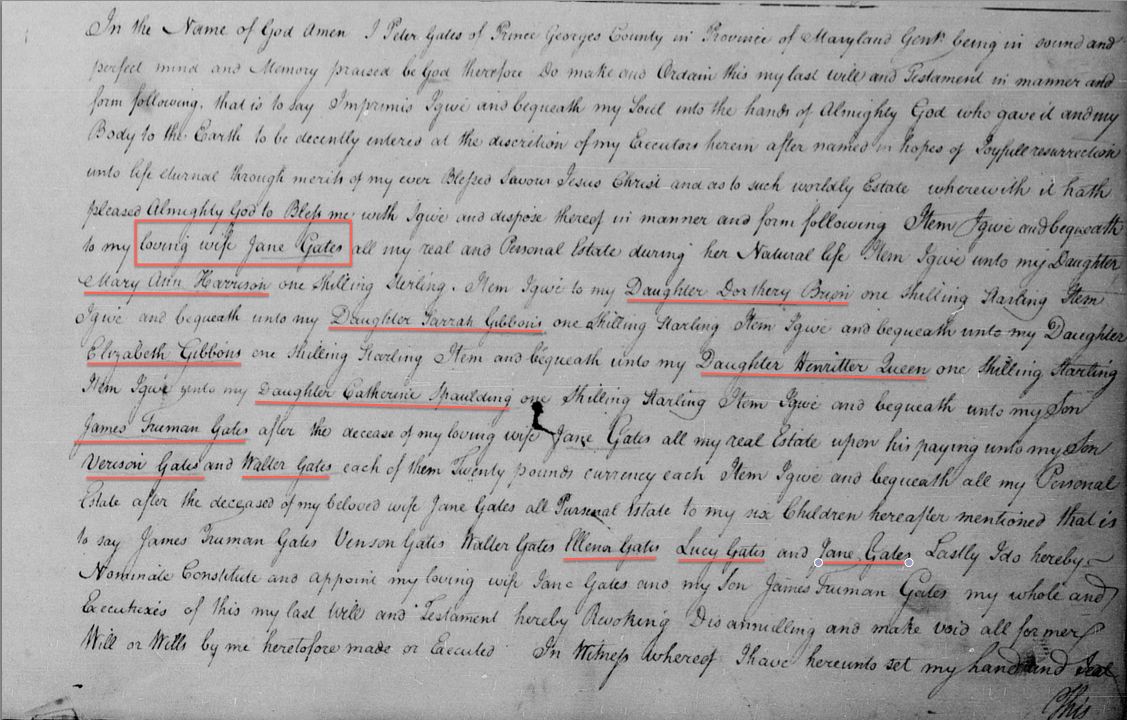 In the Name of God Amen I Peter Gates of Prince Georges County in Province of Maryland Gent being in sound and
perfect mind and Memory praised be God therefore Do make and Ordain this my last will and Testament in manner and
form following, that is to say Imprimis I give and bequeath my Soul into the hands of Almighty God who gave it and my
Body to the Earth to be decently entered at the discretion of my Executors herein after named in hopes of Joyfull resurrection
unto life eturnal through merits of my ever Blessed Savour Jesus Christ and as to such worldly Estate wherewith it hath
pleased Almighty God to Bless me with I give and dispose thereof in manner and form following Item I give and bequeath
to my loving wife Jane Gates all my real and Personal Estate during her Natural life Item I give unto my Daughter
Mary Ann Harrison one shilling Sterling. Item I give to my Daughter Dorthery Brion one shilling Starling Item
I give and bequeath unto my Daughter Sarrah Gibbons one shilling Starling Item I give and bequeath unto my Daughter
Elizabeth Gibbons one shilling Starling Item and bequeath unto my Daughter Henritter Queen one shilling Starling
Item I give unto my Daughter Catherine Spaulding one shilling Starling Item I give and bequeath unto my Son
James Truman Gates after the decease of my loving wife Jane Gates all my real Estate upon his paying unto my Son
Verison Gates and Walter Gates each of them Twenty pounds currency each Item I give and bequeath all my Personal
Estate after the deceased of my beloved wife Jane Gates all Pursenal Estate to my six Children hereafter mentioned that is
to say James Truman Gates Venson Gates Walter Gates Ellenor Gates Lucy Gates and Jane Gates Lastly I do hereby
Nominate Constitute and appoint my loving wife Jane Gates and my Son James Truman Gates my whole and
Executrixis of this my last will and Testament hereby Revoking Disannulling and make void all former
Will or Wills by me heretofore made or Executed In Witness whereof I have hereunto set my hand and Seal
This